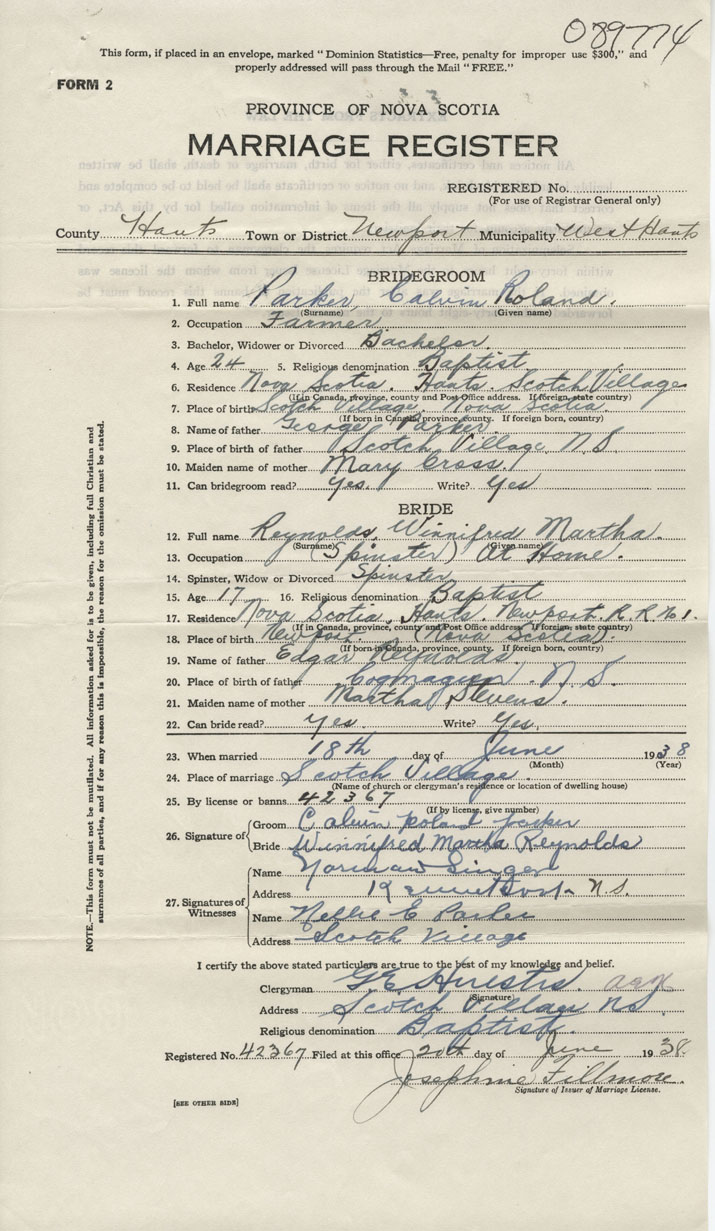 089774
This form, if placed in an envelope, marked "Dominion Statistics—Free, penalty for improper use $300," and
properly addressed will pass through the Mail "FREE."
FORM 2
PROVINCE OF NOVA SCOTIA
MARRIAGE REGISTER
REGISTERED No.
(For use of Registrar General only)
County Hants Town or District Newport Municipality West Hants
BRIDEGROOM
1. Full name Parker, Calvin Roland.
(Surname) (Given name)
2. Occupation Farmer
3. Bachelor, Widower or Divorced Bachelor.
4. Age 24 5. Religious denomination Baptist
6. Residence Nova Scotia. Hants. Scotch Village
(If in Canada, province, county and Post Office address. If foreign, state country)
7. Place of birth Scotch Village, Nova Scotia.
(If born in Canada, province, county. If foreign born, country)
8. Name of father George Parker.
9. Place of birth of father Scotch Village N.S.
10. Maiden name of mother Mary Cross.
11. Can bridegroom read? Yes. Write? Yes
BRIDE
12. Full name Reynolds, Winnifred Martha.
(Surname) (Given name)
13. Occupation (Spinster) At Home.
14. Spinster, Widow or Divorced Spinster
15. Age 17 16. Religious denomination Baptist
17. Residence Nova Scotia, Hants. Newport. R.R. No 1.
(If in Canada, province, county and Post Office address. If foreign, state country)
18. Place of birth Newport (Nova Scotia).
(If born in Canada, province, county. If foreign born, country)
19. Name of father Edgar Reynolds.
20. Place of birth of father Cogmagun. N.S.
21. Maiden name of mother Martha Stevens.
22. Can bride read? Yes. Write? Yes,
23. When married 18th day of June 1938
(Month) (Year)
24. Place of marriage Scotch Village.
(Name of church or clergyman's residence or location of dwelling house)
25. By license or banns 42367
(If by license, give number)
26. Signature of Groom Calvin Roland Parker
Bride Winnifred Martha Reynolds
27. Signatures of Witnesses Name Norman
Address N.S.
Name Nellie E Parker
Address Scotch Village
I certify the above stated particulars are true to the best of my knowledge and belief.
Clergyman G E
(Signature)
Address Scotch Village NS
Religious denomination Baptist.
Registered No. 42367 Filed at this office 20th day of June 1938.
Josephine Fillmore.
Signature of Issuer of Marriage License.
[SEE OTHER SIDE]
NOTE.—This form must not be mutilated. All information asked for is to be given, including full Christian and
surnames of all parties, and if for any reason this is impossible, the reason for the omission must be stated.